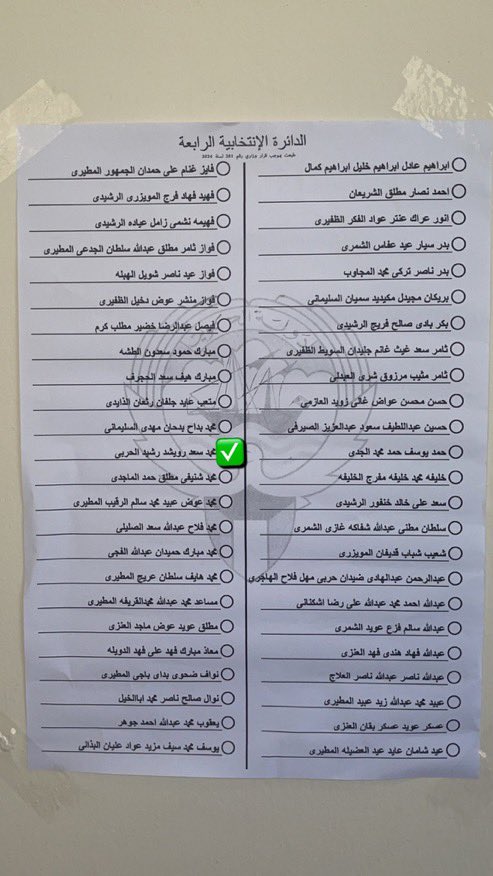 الدائرة الإنتخابية الرابعة
طبعت بموجب قرار وزاري رقم 203 لسنة 2024
ابراهيم عادل ابراهيم خليل ابراهيم كمال
احمد نصار مطلق الشريعان
انور عراك عنتر عواد الفكر الظفيري
بدر سيار عيد عفاس الشمري
بدر ناصر تركي محمد المجاوب
بريكان مجيدل مكيديد سميان السليماني
بكر بادي صالح فريج الرشيدي
ثامر سعد غيث غانم جليدان السويط الظفيري
ثامر مثيب مرزوق شري العبدلي
حسن محسن عواض غالي زويد العازمي
حسين عبداللطيف سعود عبدالعزيز الصيرفي
حمد يوسف حمد محمد الجدي
خليفه محمد خليفه مفرج الخليفه
سعد علي خالد خنفور الرشيدي
سلطان مطني عبدالله شفاكه غازي الشمري
شعيب شباب قديفان المويزري
عبدالرحمن عبدالهادي ضيدان حربي مهل فلاح الهاجري
عبدالله احمد محمد عبدالله علي رضا اشكناني
عبدالله سالم فزع عويد الشمري
عبدالله فهاد هندي فهد العنزي
عبدالله ناصر عبدالله ناصر العلاج
عبيد محمد عبدالله زيد عبيد المطيري
عسكر عويد عسكر بقان العنزي
عيد شامان عايد عيد العضيله المطيري
فايز غنام علي حمدان الجمهور المطيري
فهيد فهاد فرج المويزري الرشيدي
فهيمه نشمي زامل عياده الرشيدي
فواز ثامر مطلق عبدالله سلطان الجدعي المطيري
فواز عيد ناصر شويل الهبله
فواز منشر عوض دخيل الظفيري
فيصل عبدالرضا خضير مطلب كرم
مبارك حمود سعدون الطشه
مبارك هيف سعد الحجرف
متعب عايد جلفان رثعان الذايدي
محمد بداح بدحان مهدي السليماني
محمد سعد رويشد رشيد الحربي
محمد شنيفي مطلق حمد الماجدي
محمد عوض عبيد محمد سالم الرقيب المطيري
محمد فلاح عبدالله سعد الصليلي
محمد مبارك حميدان عبدالله الفجي
محمد هايف سلطان عريج المطيري
مساعد محمد عبدالله محمد القريفه المطيري
مطلق عويد عوض ماجد العنزي
معاذ مبارك فهد علي فهد الدويله
نواف ضحوي بداي باجي المطيري
نوال صالح ناصر محمد اباالخيل
يعقوب محمد عبدالله احمد جوهر
يوسف محمد سيف مزيد عواد عليان البذالي